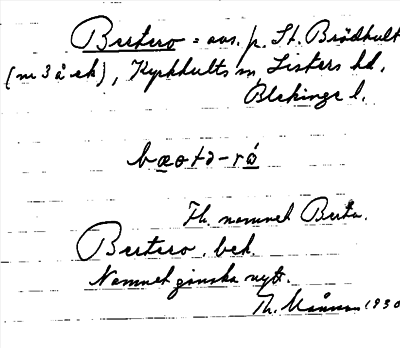 Bertero = avs. p. St. Brödhult
(m 3 å ek), Kyrkhults sn. Listers hd.
Blekinge l.
bæotə-ró
Fh. namnet Berta.
Bertero. bek.
Namnet ganska nytt.
Th. 1930